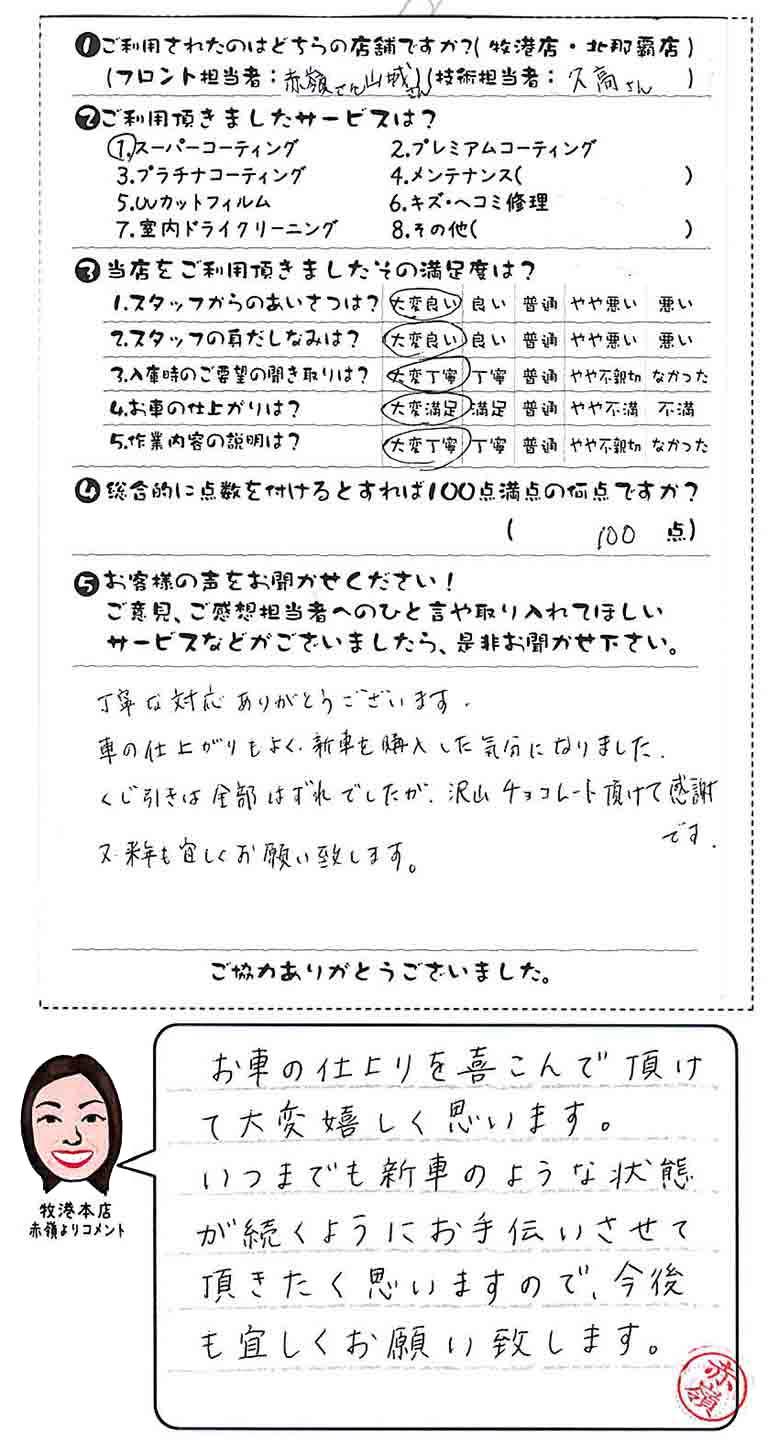 ❶ご利用されたのはどちらの店舗ですか?(牧港店・北那覇店)
(フロント担当者:赤嶺さん山城さん)(技術担当者:久高さん)
❷ご利用頂きましたサービスは?
1.スーパーコーティング 2.プレミアムコーティング
3.プラチナコーティング 4.メンテナンス( )
5.UVカットフィルム 6.キズ・ヘコミ修理
7.室内ドライクリーニング 8.その他( )
❸当店をご利用頂きましたその満足度は?
1.スタッフからのあいさつは? 大変良い 良い 普通 やや悪い 悪い
2.スタッフの身だしなみは? 大変良い 良い 普通 やや悪い 悪い
3.入庫時のご要望の聞き取りは? 大変丁寧 丁寧 普通 やや不親切 なかった
4.お車の仕上がりは? 大変満足 満足 普通 やや不満 不満
5.作業内容の説明は? 大変丁寧 丁寧 普通 やや不親切 なかった
❹総合的に点数を付けるとすれば100点満点の何点ですか?
( 100 点)
❺お客様の声をお聞かせください!
ご意見、ご感想担当者へのひと言や取り入れてほしい
サービスなどがございましたら、是非お聞かせ下さい。
丁寧な対応ありがとうございます.
車の仕上がりもよく、新車を購入した気分になりました.
くじ引きは全部はずれでしたが、沢山チョコレート頂けて感謝
です.
又来年も宜しくお願い致します。
ご協力ありがとうございました。
お車の仕上りを喜こんで頂け
て大変嬉しく思います。
いつまでも新車のような状態
が続くようにお手伝いさせて
頂きたく思いますので、今後
も宜しくお願い致します。
牧港本店
赤嶺よりコメント
赤嶺